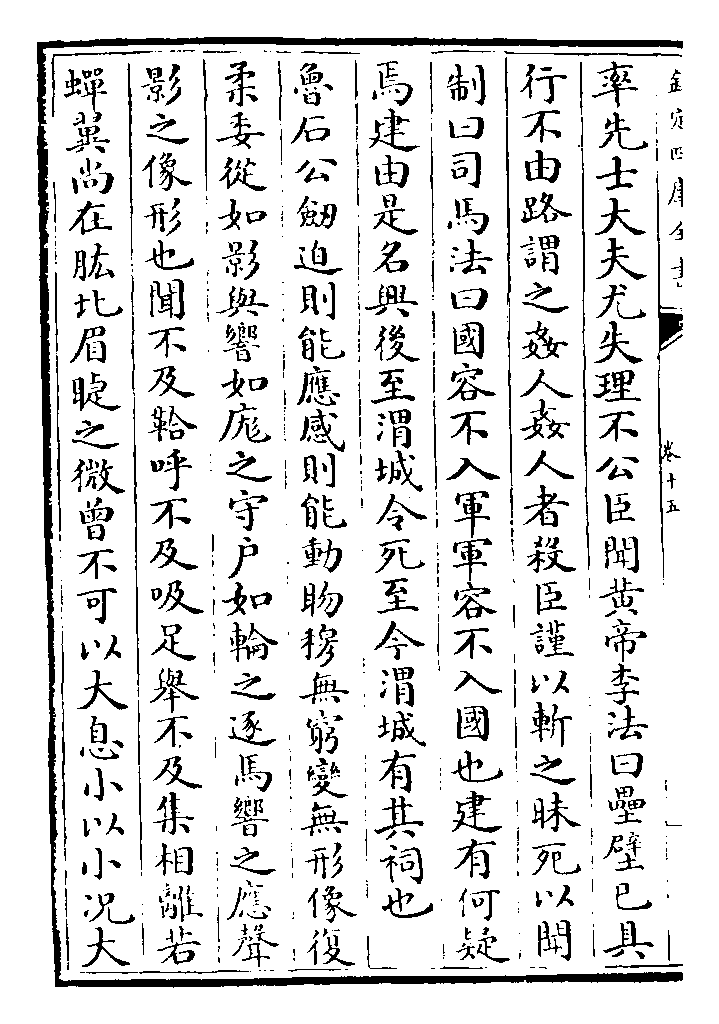 欽定四庫全書
卷十五
率先士大夫尤失理不公臣聞黄帝李法曰壘壁已具
行不由路謂之姦人姦人者殺臣謹以斬之昧死以聞
制曰司馬法曰國容不入軍軍容不入國也建有何疑
焉建由是名興後至渭城令死至今渭城有其祠也
魯石公劒迫則能應感則能動昒穆無窮變無形像復
柔委從如影與響如庬之守户如輪之逐馬響之應聲
影之像形也聞不及鞈呼不及吸足舉不及集相離若
蟬翼尚在肱北眉睫之微曾不可以大息小以小况大